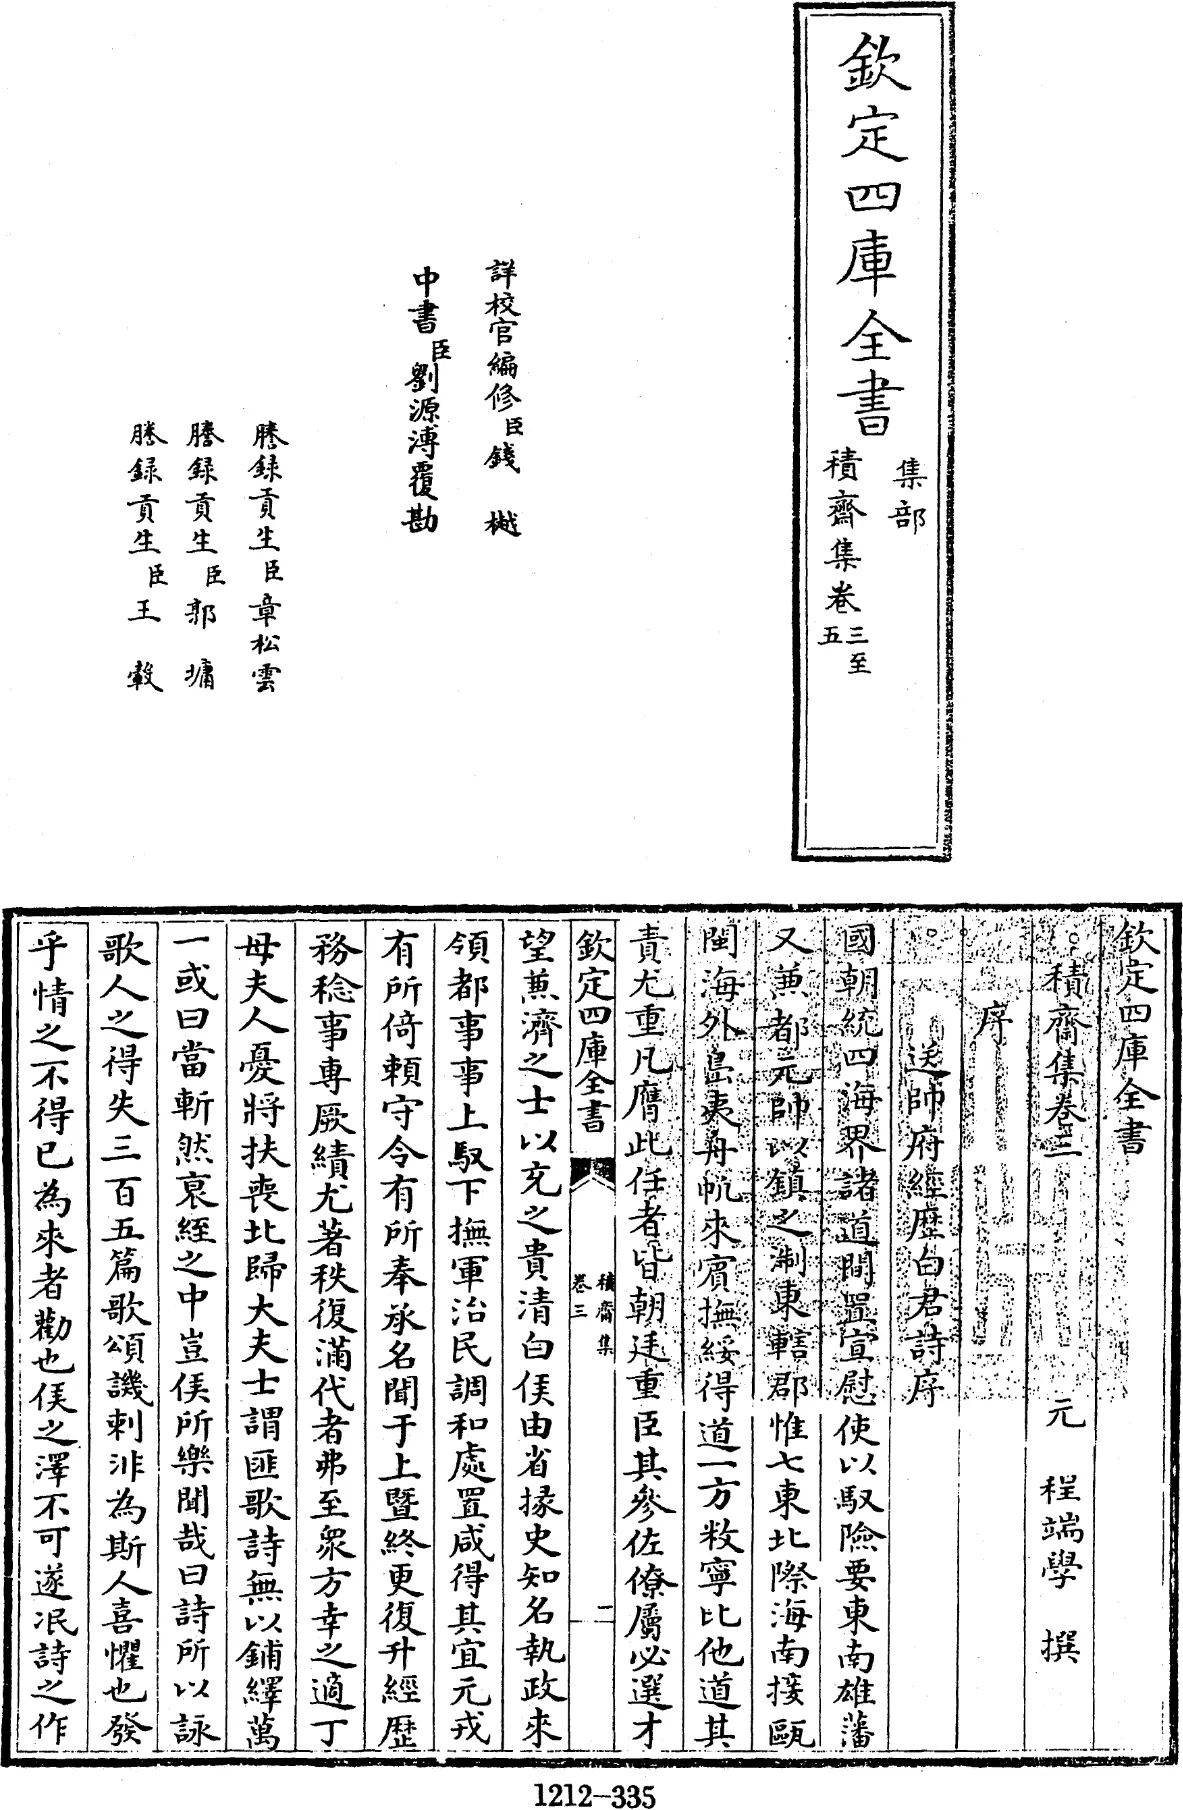 欽定四庫全書
集部
積齋集卷三至五
詳校官編修臣錢樾
中書臣劉源溥覆勘
謄録貢生臣章松雲
謄録貢生臣郭墉
謄録貢生臣王轂
欽定四庫全書
積齋集卷三
元 程端學 撰
序
送帥府經歷白君詩序
國朝統四海界諸道間置宣慰使以馭險要東南雄藩
又兼都元帥以鎮之浙東轄郡惟七東北際海南接甌
閩海外島夷舟帆來賓撫綏得道一方敉寧比他道其
責尤重凡膺此任者皆朝廷重臣其參佐僚屬必選才
欽定四庫全書
積齋集
卷三
二
望兼濟之士以充之貴清白侯由省掾史知名執政來
領都事事上馭下撫軍治民調和處置咸得其宜元戎
有所倚賴守令有所奉承名聞于上暨終更復升經歷
務稔事專厥績尤著秩復滿代者弗至衆方幸之適丁
母夫人憂將扶喪北歸大夫士謂匪歌詩無以鋪繹萬
一或曰當斬然衰絰之中豈侯所樂聞哉曰詩所以詠
歌人之得失三百五篇歌頌譏刺非為斯人喜懼也發
乎情之不得已為來者勸也侯之澤不可遂泯詩之作
1212-335